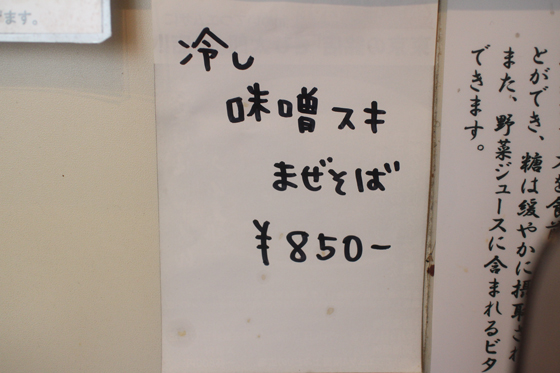 冷し
味噌スキ
まぜそば
¥850-
とができ、糖は緩やかに摂取され
また、野菜ジュースに含まれるビタ
できます。
ます。